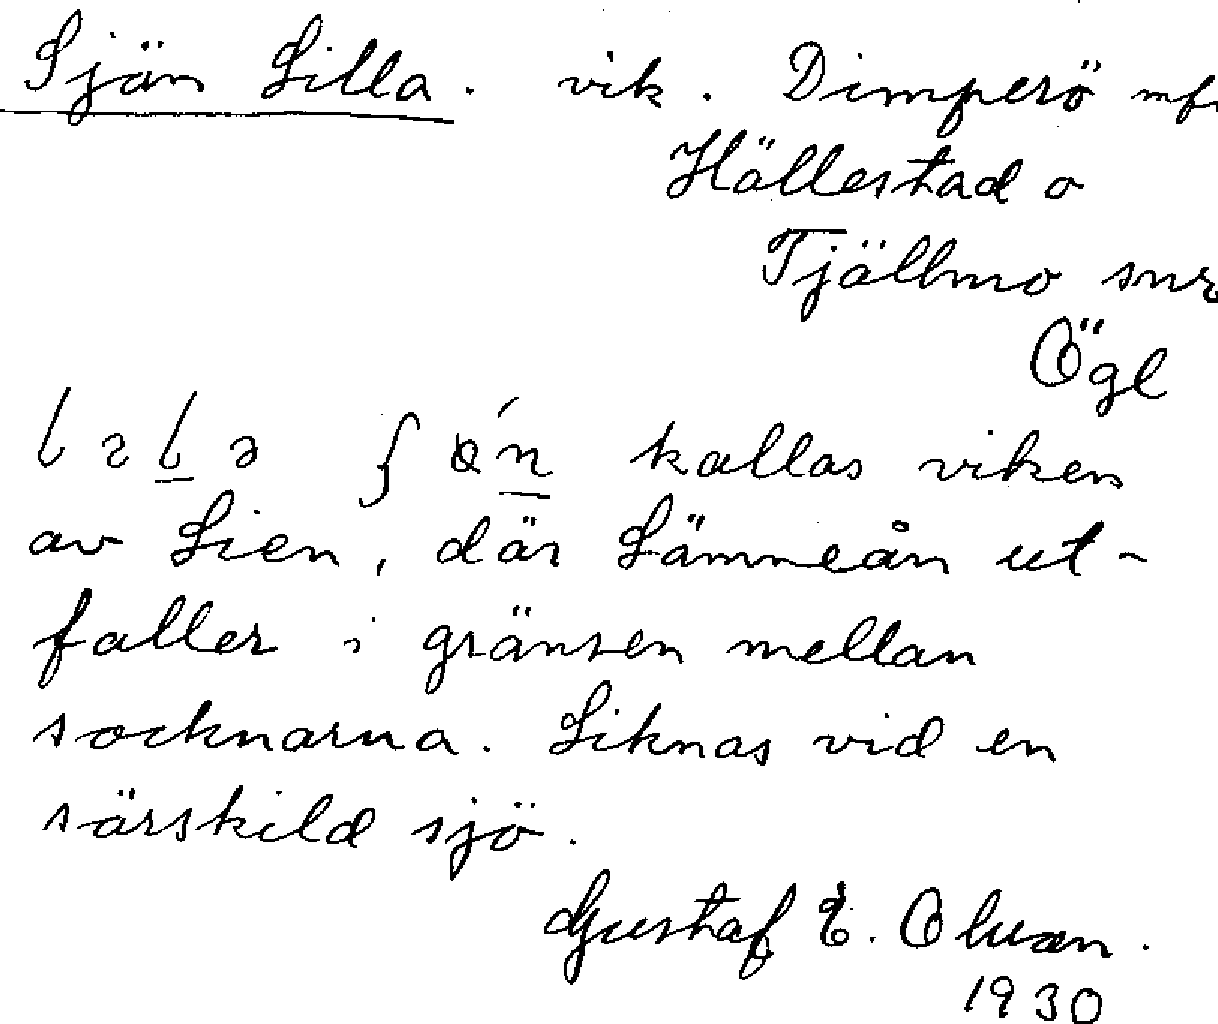 Sjön Lilla. vik. Dimperö mfl
Hällestad o
Tjällmo snr
Ögl
kallas viken
av Lien, där Lämneån ut-
faller i gränsen mellan
socknarna. Liknas vid en
särskild sjö.
Gustaf E. Olsson.
1930